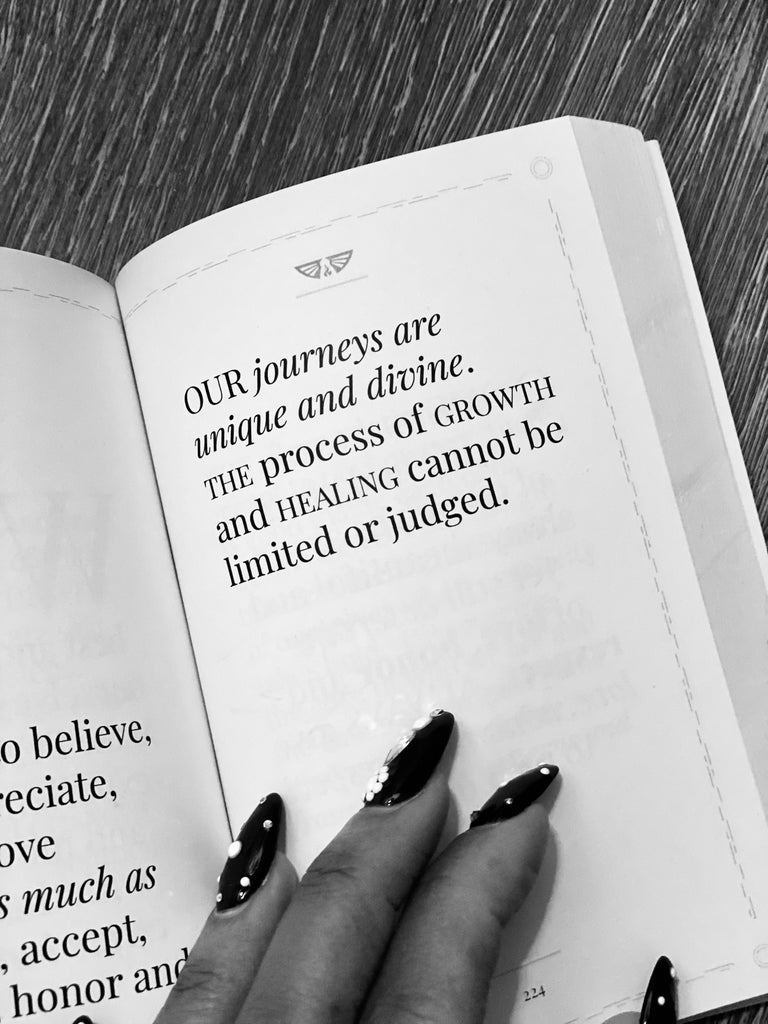 o believe,
reciate,
ove
s much as
, accept,
honor and
OUR journeys are
unique and divine.
THE process of GROWTH
and HEALING cannot be
limited or judged.
224